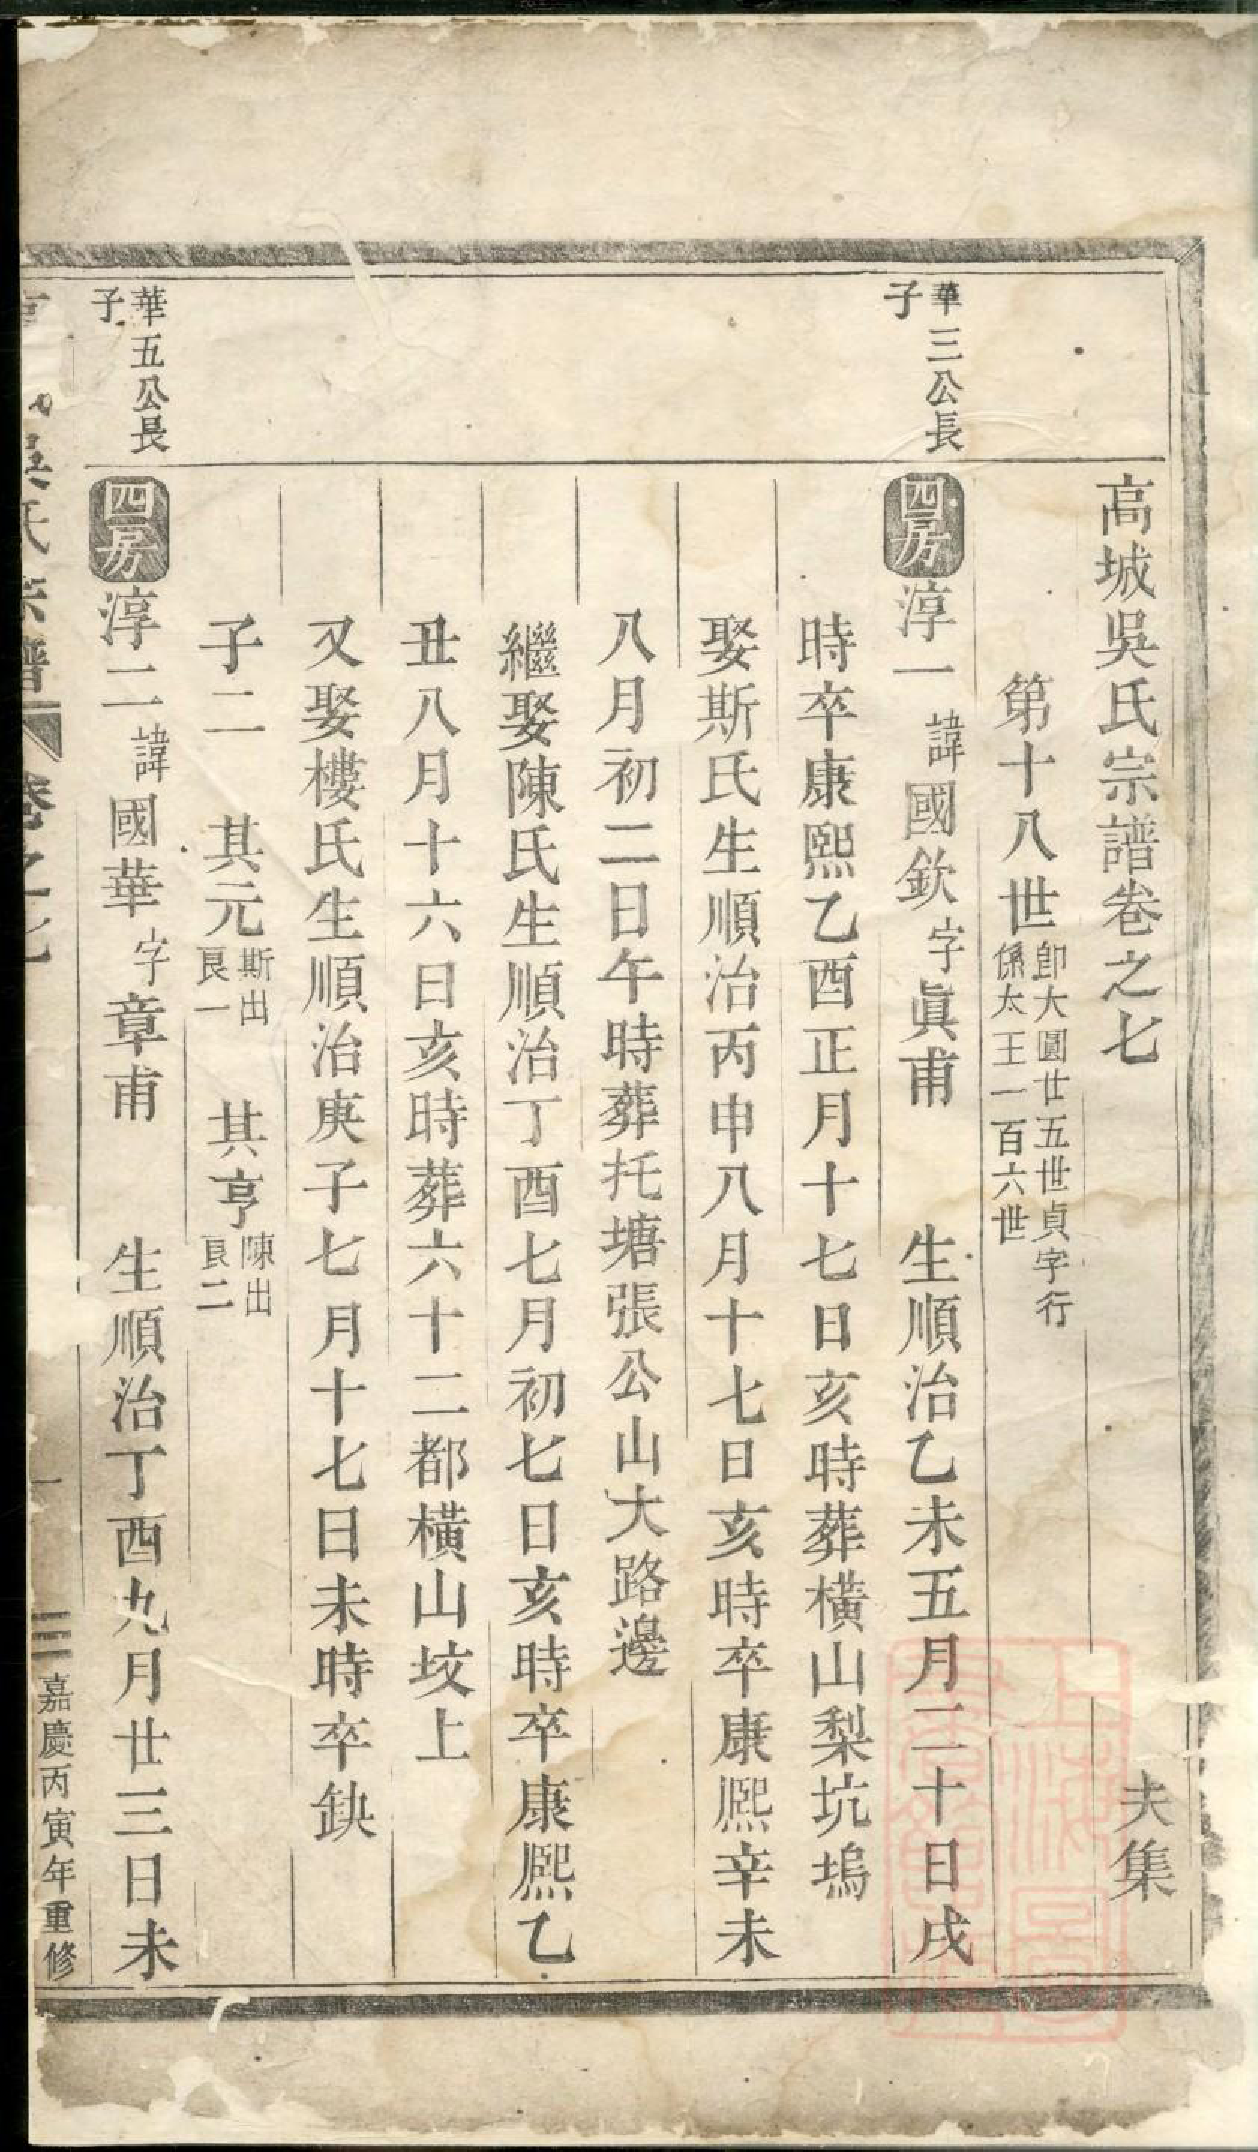 高城吳氏宗譜卷之七
夫集
第十八世
卽大圓廿五世貞字行
係太王一百六世
華三公長
子
四房
淳一諱國欽字眞甫 生順治乙未五月二十日戌
時卒康熙乙酉正月十七日亥時葬橫山梨坑塢
娶斯氏生順治丙申八月十七日亥時卒康熙辛未
八月初二日午時葬托塘張公山大路邊
繼娶陳氏生順治丁酉七月初七日亥時卒康熙乙
丑八月十六日亥時葬六十二都橫山坟上
又娶樓氏生順治庚子七月十七日未時卒缺
子二 其元 斯出 艮一 其亨 陳出 艮二
華五公長
子
四房
淳二諱國華字章甫 生順治丁酉九月廿三日未
吳氏宗譜 卷之七 一 嘉慶丙寅年重修
上海圖